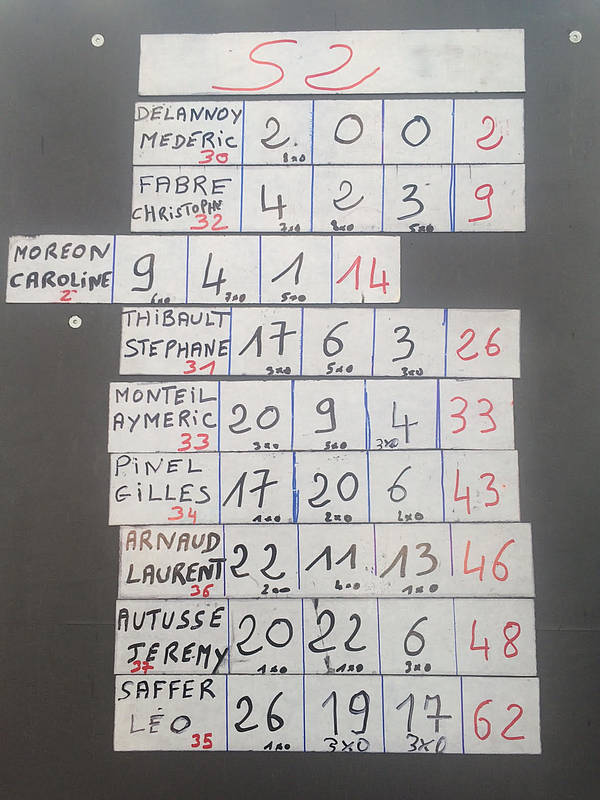 S2
DELANNOY
MEDERIC 2. 0 0 2
30 8x0
FABRE
CHRISTOPHE 4 2 3 9
32 7x0 8x0 5x0
MOREON
CAROLINE 9 4 1 14
2 6x0 7x0 5x0
THIBAULT
STEPHANE 17 6 3 26
31 3x0 5x0 3x0
MONTEIL
AYMERIC 20 9 4 33
33 3x0 5x0 3x0
PINEL
GILLES 17 20 6 43
34 1x0 2x0 2x0
ARNAUD
LAURENT 22 11 13 46
36 4x0 1x0
AUTUSSE
JEREMY 20 22 6 48
37 1x0 1x0 3x0
SAFFER
LÉO 26 19 17 62
35 1x0 3x0 3x0